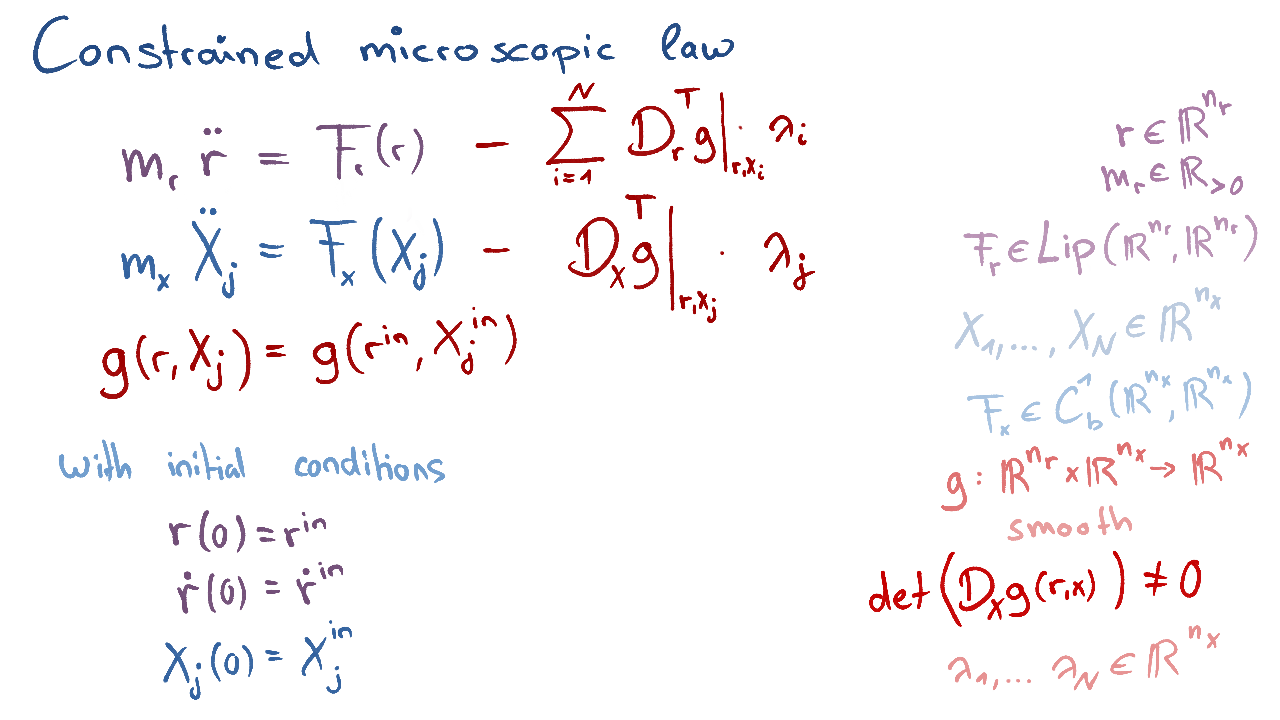 Constrained microscopic law
m_r r̈ = F_r(r) − ∑_{i=1}^{N} D_r^T g|_{r,X_i} · λ_i
m_x Ẍ_j = F_x(X_j) − D_x^T g|_{r,X_j} · λ_j
g(r, X_j) = g(r^{in}, X_j^{in})
with initial conditions
r(0) = r^{in}
ṙ(0) = ṙ^{in}
X_j(0) = X_j^{in}
r ∈ ℝ^{n_r}
m_r ∈ ℝ_{>0}
F_r ∈ Lip(ℝ^{n_r}, ℝ^{n_r})
X_1, ..., X_N ∈ ℝ^{n_x}
F_x ∈ C_b^1(ℝ^{n_x}, ℝ^{n_x})
g : ℝ^{n_r} × ℝ^{n_x} → ℝ^{n_x}
smooth
det(D_x g(r,x)) ≠ 0
λ_1, ... λ_N ∈ ℝ^{n_x}